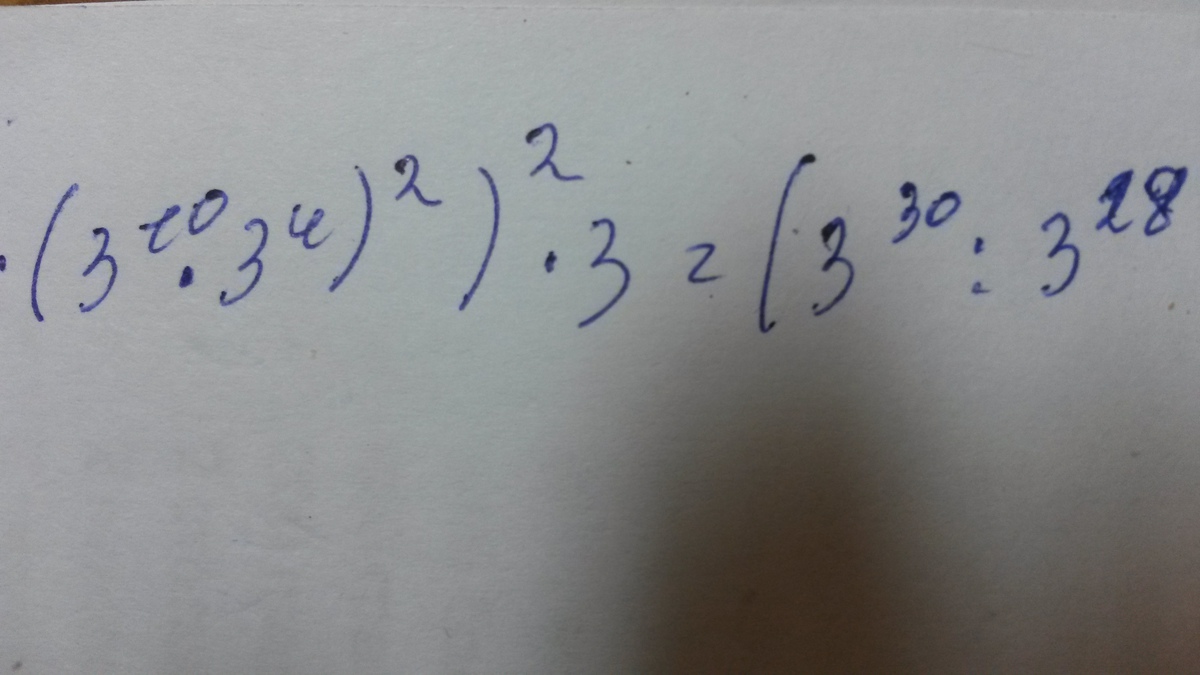 · (3¹⁰ · 3⁴)²)² · 3 = (3³⁰ : 3²⁸